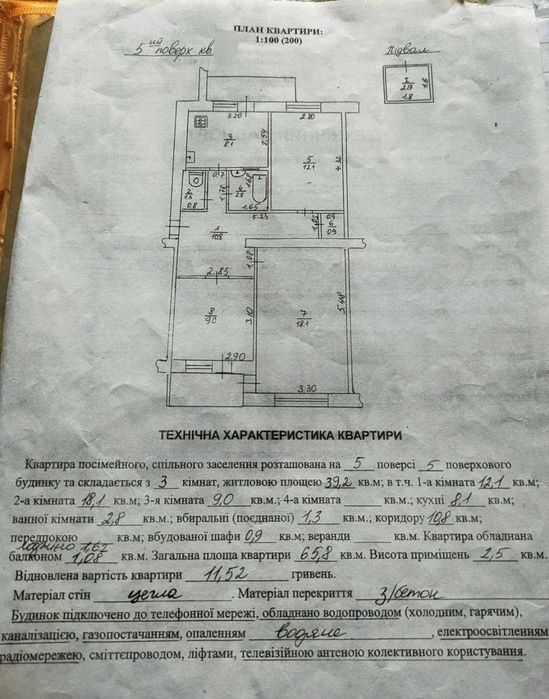 ПЛАН КВАРТИРИ:
1:100 (200)
5 ий поверх кв.
Підвал
I
2.9
1.6
1.8
3.20
2.80
3
8.1
2.54
5
12.1
4.32
2
1.3
0.8
0.7
1.78
4
2.8
1.68
1.65
5.23
1
10.8
1.05
0.9
6
0.9
1.08
2.85
8
9.0
3.10
7
18.1
5.48
2.90
3.30
ТЕХНІЧНА ХАРАКТЕРИСТИКА КВАРТИРИ
Квартира посімейного, спільного заселення розташована на 5 поверсі 5 поверхового
будинку та складається з 3 кімнат, житловою площею 39,2 кв.м; в т.ч. 1-а кімната 12,1 кв.м;
2-а кімната 18,1 кв.м; 3-я кімната 9,0 кв.м.; 4-а кімната кв.м.; кухні 8,1 кв.м;
ванної кімнати 2,8 кв.м.; вбиральні (поєднаної) 1,3 кв.м.; коридору 10,8 кв.м.;
передпокою кв.м.; вбудованої шафи 0,9 кв.м; веранди кв.м. Квартира обладнана
лоджією 1,62
балконом 1,08 кв.м. Загальна площа квартири 65,8 кв.м. Висота приміщень 2,5 кв.м.
Відновлена вартість квартири 11,52 гривень.
Матеріал стін цегла. Матеріал перекриття з/бетон
Будинок підключено до телефонної мережі, обладнано водопроводом (холодним, гарячим),
каналізацією, газопостачанням, опаленням водяне, електроосвітленням
радіомережею, сміттєпроводом, ліфтами, телевізійною антеною колективного користування.